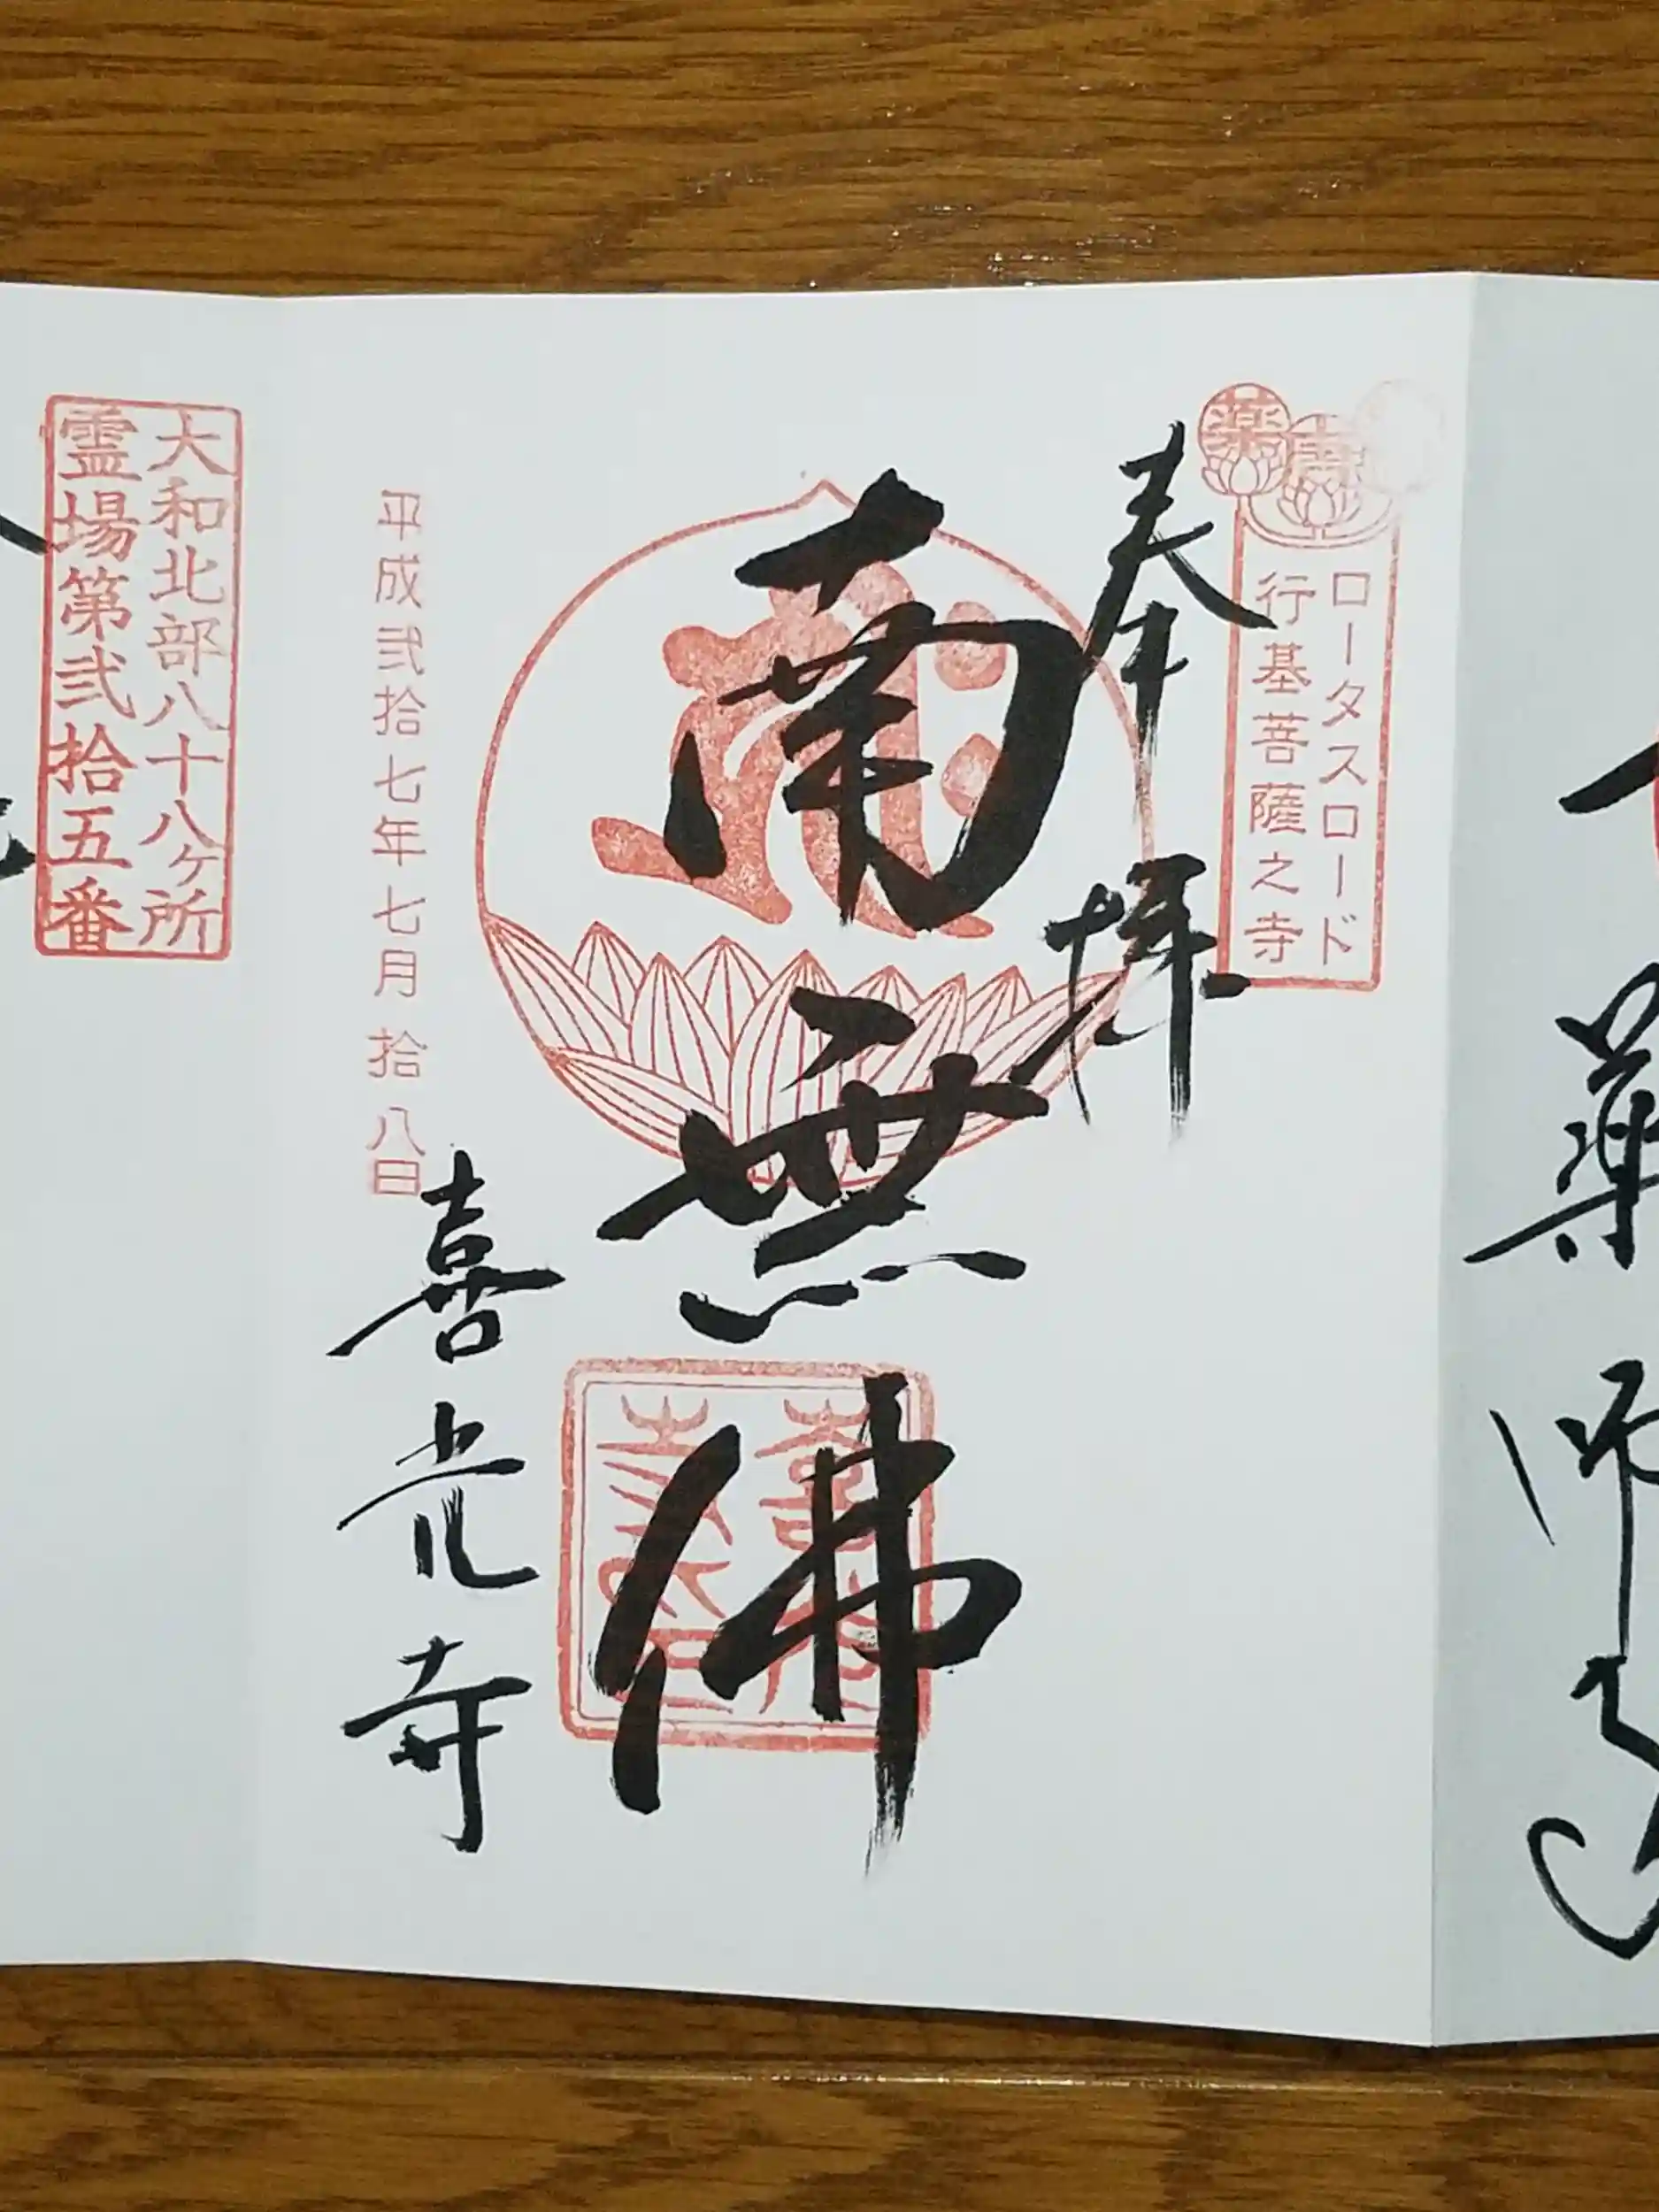 薬
唐
ロータスロード
行基菩薩之寺
奉拝
南無佛
平成弐拾七年七月拾八日
喜光寺
大和北部八十八ヶ所
霊場第弐拾五番
薬師